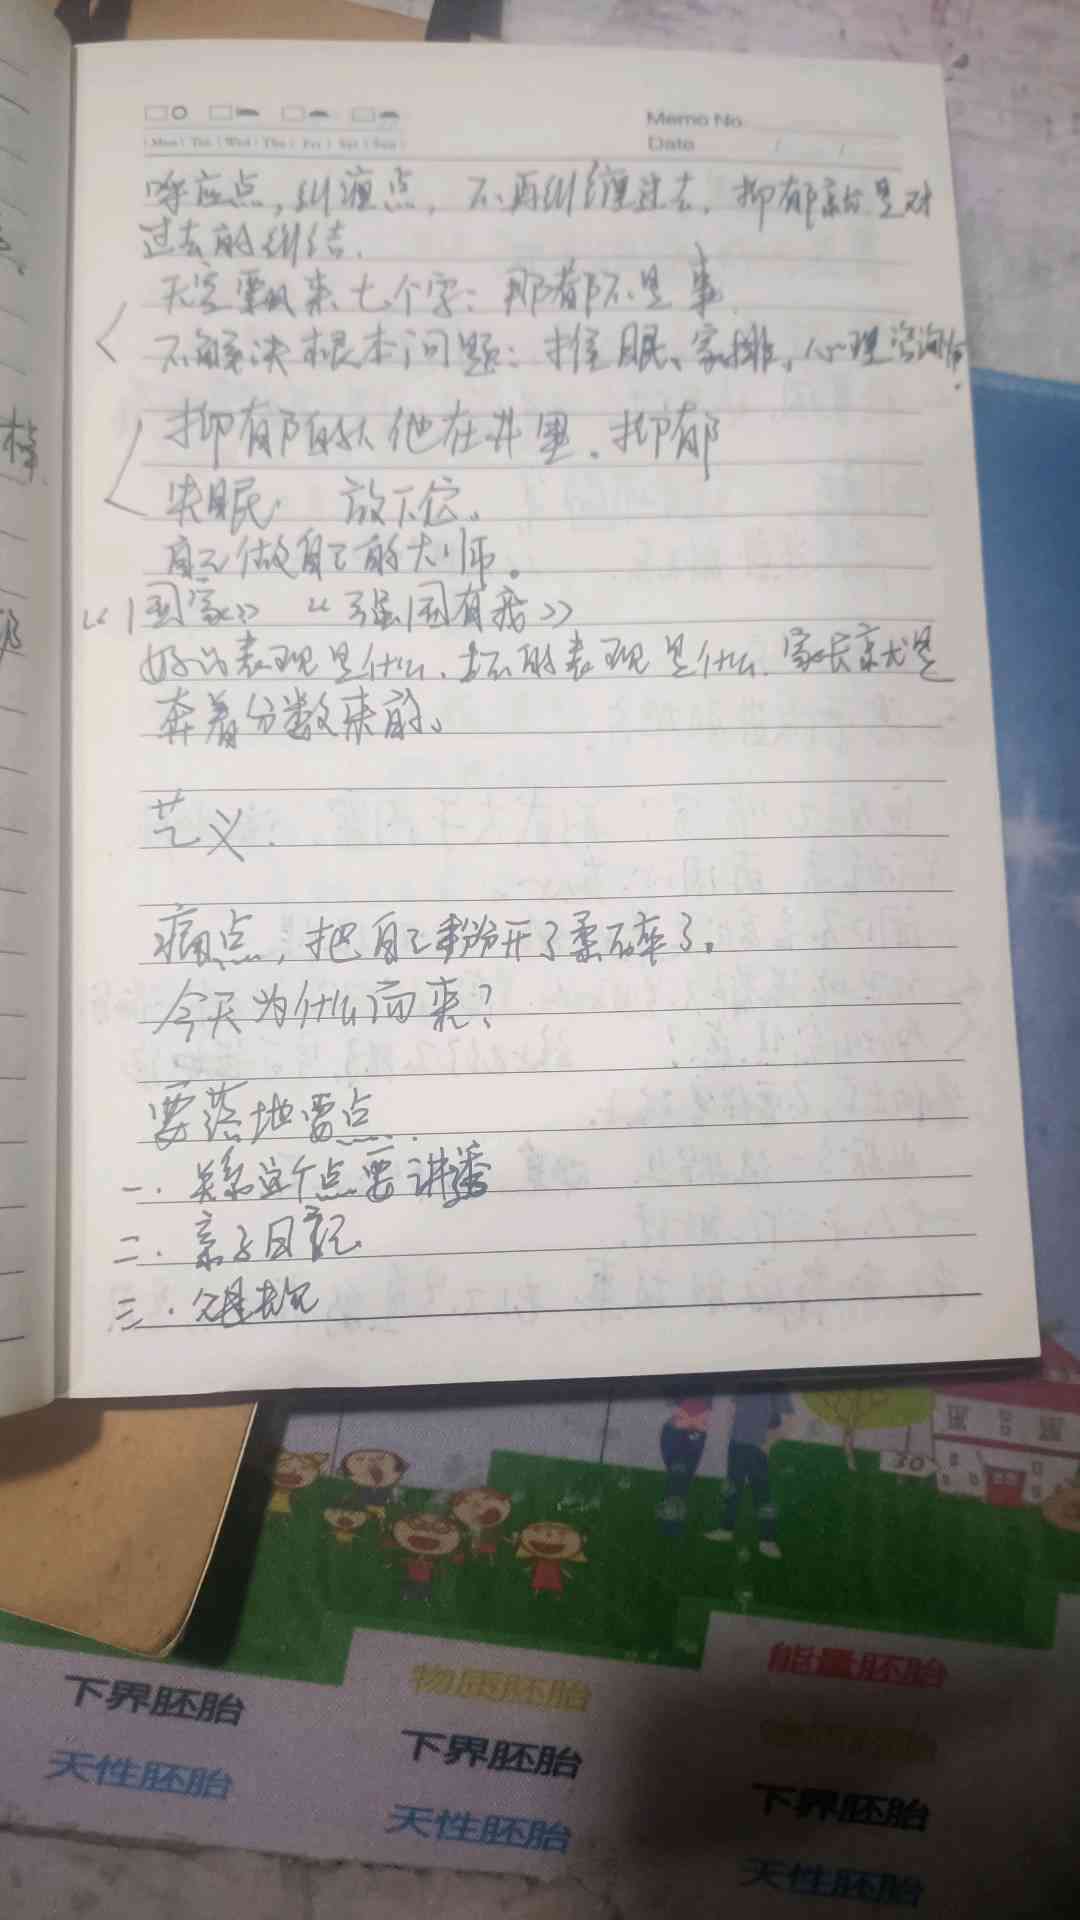 Memo No.
Date
Mon Tue Wed Thu Fri Sat Sun
呼应点,纠缠点,不再纠缠过去,抑郁就是对
过去的纠结.
天空飘来七个字:那都不是事.
不解决根本问题:催眠、家排,心理咨询师.
抑郁的人他在井里.抑郁
失眠. 放下它。
自己做自己的大师。
“国家》 “强国有我》
好的表现是什么,坏的表现是什么.家长就是
奔着分数来的。
艺义.
痛点,把自己掰开了柔碎了。
今天为什么而来?
要落地要点.
一.关系这个点要讲透
二.亲子日记
三.父母
下界胚胎
天性胚胎
物质胚胎
下界胚胎
天性胚胎
能量胚胎
下界胚胎
天性胚胎